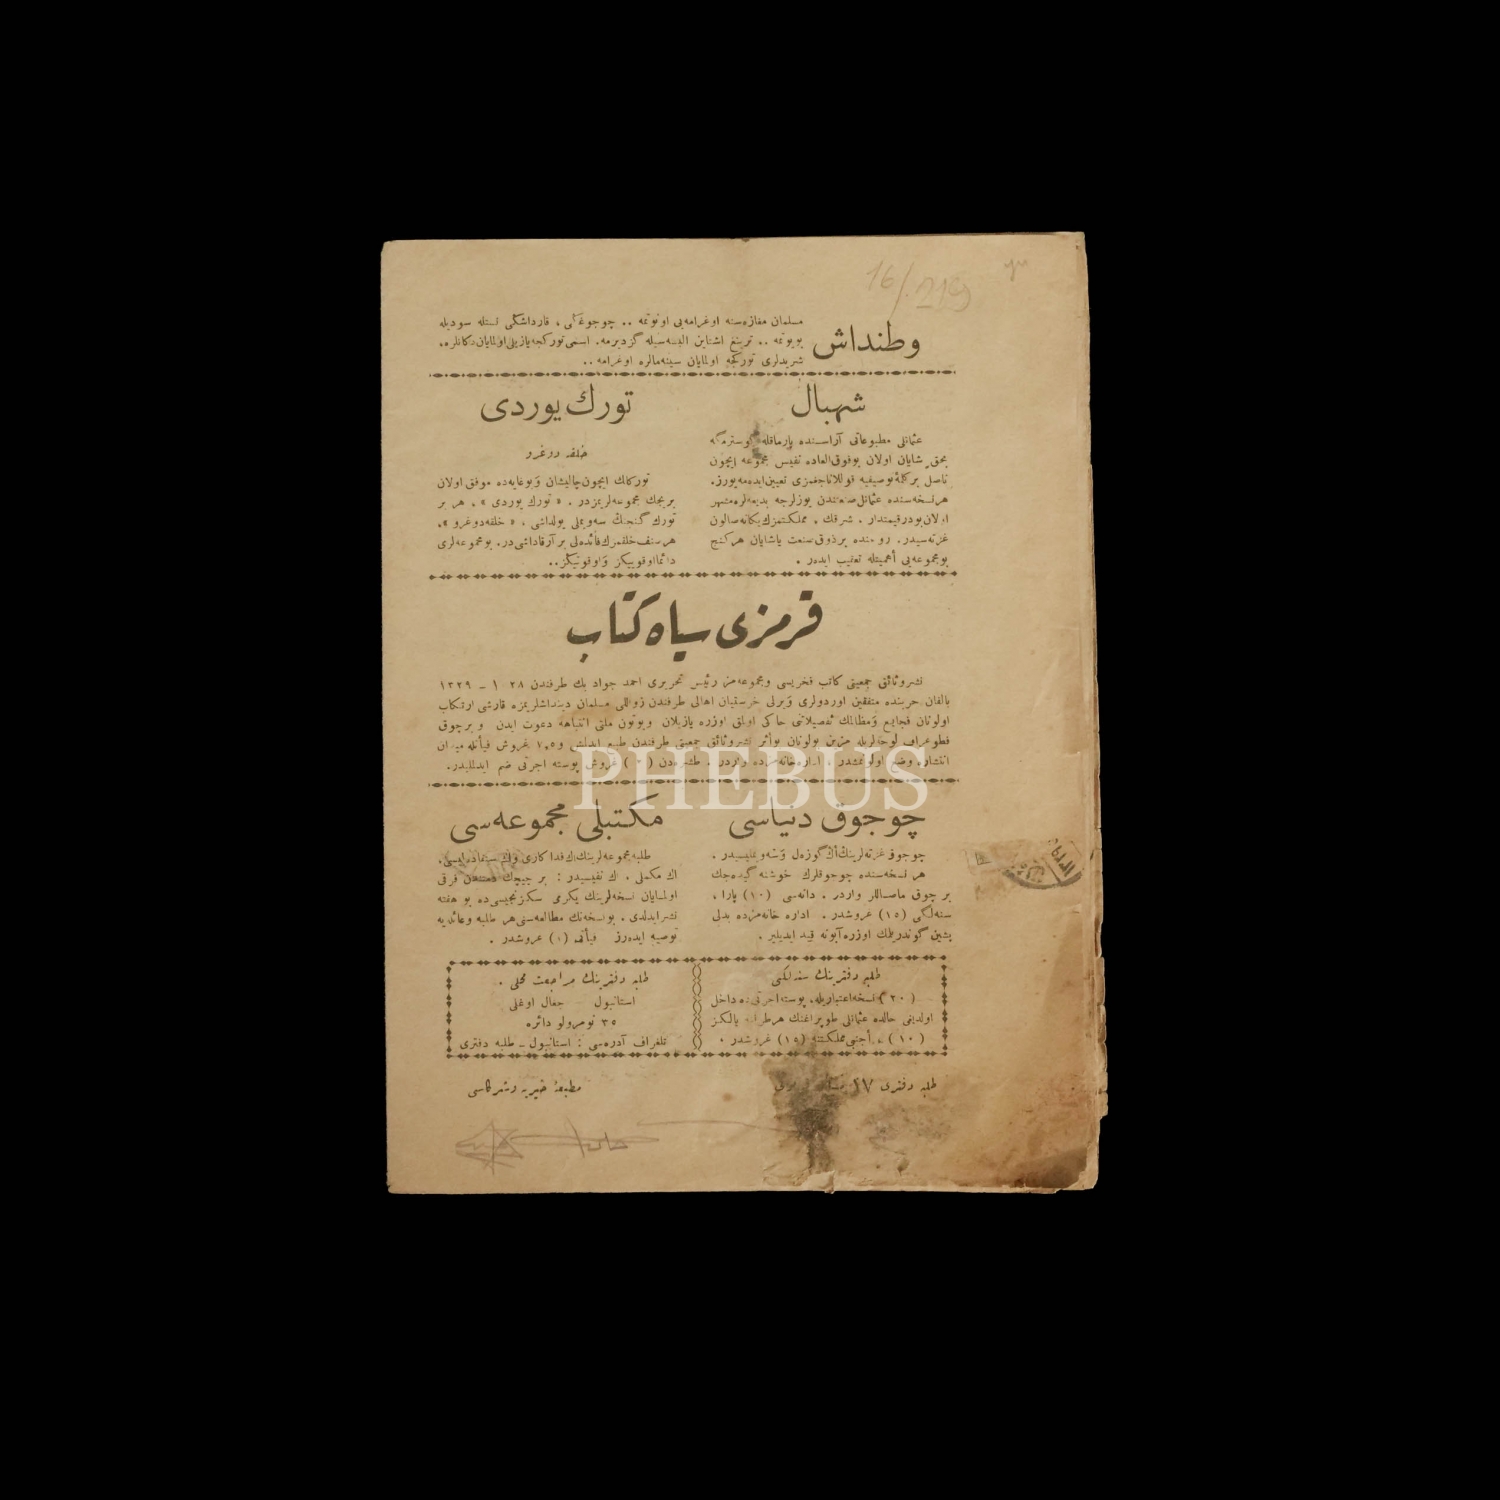 16/.219
وطنداش
مسلمان مغازه‌سنه اوغرامه‌یی اونوتمه .. چوجوغكی ، قارداشكی سودیله
بویوتمه .. اسمی تورکجه یازیلی اولمایان دکانلره،
تورکجه اولمایان سینه‌مالره اوغرامه ..
شهبال
عثمانلی مطبوعاتی آراسنده پارماقله كوسترمكه
بحق شایان اولان بوفوق‌العاده نفیس مجموعه ایچون
ناصل بركلمهٔ توصیفیه قوللاناجغمزی تعیین ایده‌مه‌یورز.
هرنسخه‌سنده عثمانلی یوزلرجه بدیعه‌لره
شرقك ، مملكتمزك یكانه صالون
غزته‌سیدر. روحنده برذوق صنعت یاشایان هركنج
بومجموعه‌یی أهمیتله تعقیب ایده‌ر .
تورك یوردی
خلقه دوغرو
تورکلك ایچون چالیشان وبوغایه‌ده موفق اولان
بریجك مجموعه‌لریمزدر . « تورك یوردی » ، هر بر
تورك گنجنك سه‌ویملی یولداشی ، « خلقه‌دوغرو »،
هرصنف خلقمزك فائده‌لی بر آرقاداشی‌در. بومجموعه‌لری
دائما اوقویيكز واوقوتيكز..
قرمزی سیاه كتاب
نشر وثائق جمعیتی كاتب فخریسی ومجموعه‌مز رئیس تحریری احمد جواد بك طرفندن ١٣٢٨ - ١٣٢٩
بالقان حربنده متفقین اوردولری ویرلی خرستیان اهالی طرفندن زواللی مسلمان دینداشلریمزه قارشی ارتكاب
اولونان فجایع ومظالمك تفصیلاتنی حاكی اولمق اوزره یازیلان وبوتون ملتی انتباهه دعوت ایدن و برچوق
فطوغراف لوحه‌لریله مزین بولونان بوأثر نشر وثائق جمعیتی طرفندن طبع ایدلمش و ٧,٥ غروش فیأتله میدان
انتشاره وضع اولونمشدر . اداره‌خانه‌مزده واردر . طشره‌دن غروش پوسته اجرتی ضم ایدلليدر.
PHEBUS
چوجوق دنیاسی
چوجوق غزته‌لرینك أك گوزه‌ل
هر نسخه‌سنده چوجوقلرك خوشنه گیده‌جك
بر چوق ماصاللر واردر . دانه‌سی (١٠) پارا ،
سنه‌لكی (١٥) غروشدر . اداره خانه‌مزده بدلی
پشین گوندریلمك اوزره آبونه قید ایدیلیر .
مكتبلی مجموعه‌سی
طلبه مجموعه‌لرینك اك فداكاری
اك مكملی ، اك نفیسیدر : بر چیچك دمتندن فرقی
اولمایان نسخه‌لرینك یكرمی سكزنجیسی‌ده بو هفته
نشر ایدلدی . بونسخه‌نك مطالعه‌سنی هر طلبه وعائله‌یه
توصیه ایده‌رز فیأتی (١) غروشدر .
طلبه دفترینك سنه‌لكی
(٢٠) نسخه اعتباریله، پوسته اجرتی‌ده داخل
اولدیغی حالده عثمانلی طوپراغنك هرطرفنه یالكز
(١٠) ، أجنبی مملكتنه (١٥) غروشدر .
طلبه دفترینك مراجعت محلی .
استانبول جغال اوغلی
٣٥ نومرولو دائره
تلغراف آدره‌سی : استانبول ـ طلبه دفتری
طلبه دفتری ١٧
مطبعهٔ خیریه وشركاسی